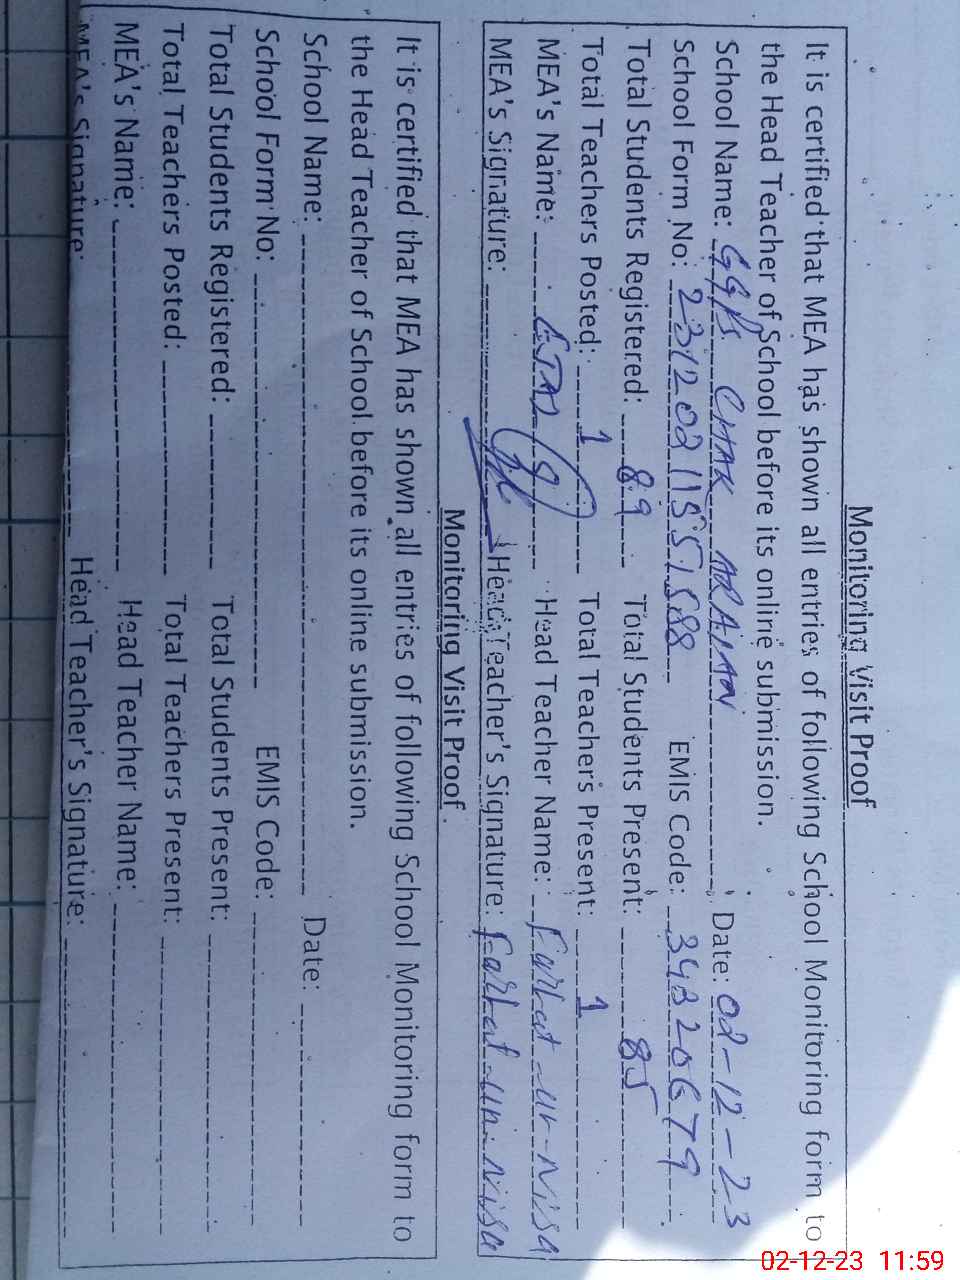 Monitoring Visit Proof
It is certified that MEA has shown all entries of following School Monitoring form to
the Head Teacher of School before its online submission.
School Name: GGPS CHAK ARAIAN Date: 02-12-23
School Form No: 23120211551588 EMIS Code: 34320679
Total Students Registered: 89 Total Students Present: 85
Total Teachers Posted: 1 Total Teachers Present: 1
MEA's Name: Head Teacher Name: Farhat-ur-Nisa
MEA's Signature: Head Teacher's Signature: Farhat-un-Nisa
Monitoring Visit Proof
It is certified that MEA has shown all entries of following School Monitoring form to
the Head Teacher of School before its online submission.
School Name: Date:
School Form No: EMIS Code:
Total Students Registered: Total Students Present:
Total Teachers Posted: Total Teachers Present:
MEA's Name: Head Teacher Name:
MEA's Signature: Head Teacher's Signature:
02-12-23 11:59